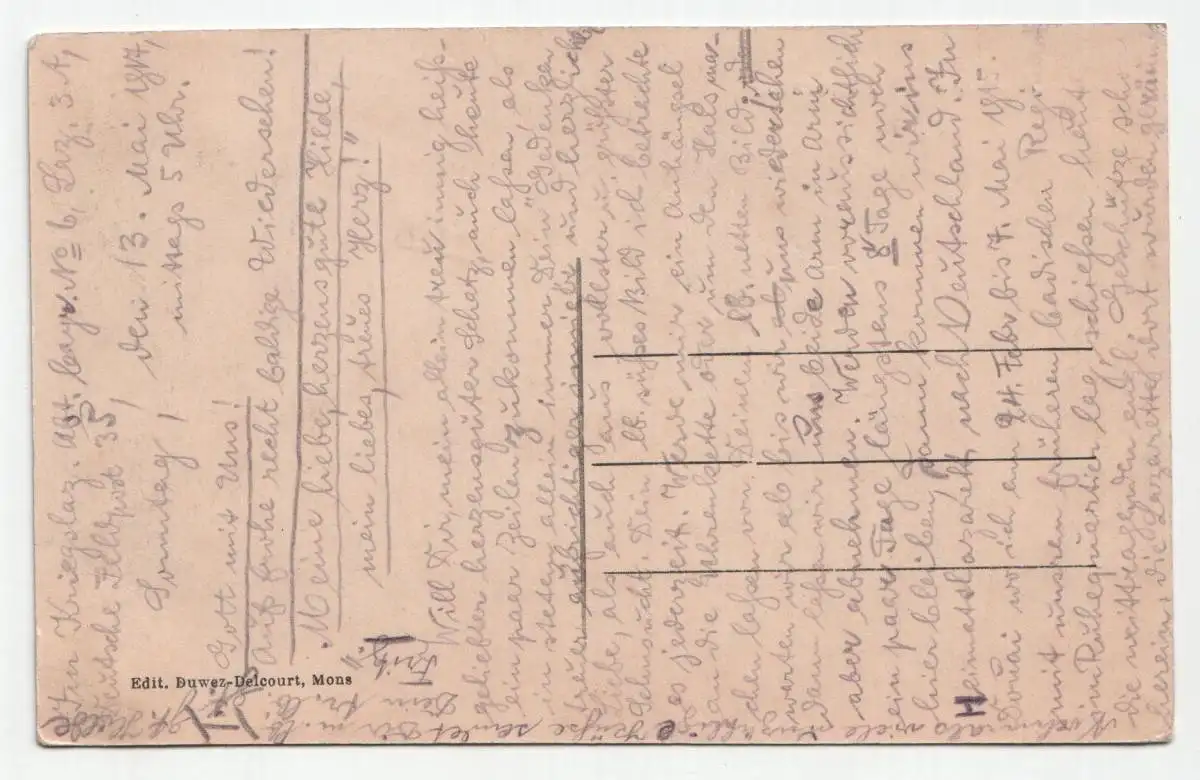 Im Kriegslaz. Abt. bayr. No 6, Krz. 3 A,
Deutsche Feldpost 35
Sonntag, den 13. Mai 1917,
mittags 5 Uhr.
Gott mit Uns!
Auf frohe recht baldige Wiedersehen!
Meine liebe, herzensgute Hilde
mein liebes, treues Herz!"
Will Dir, mein allein treu innig heiß-
geliebter herzensguter Schatz, auch heute
ein paar Zeilen zukommen lassen als
in steten allem immer Dein Gedenken
treuer aufrichtiger innigst und herzlichst
Liebe, als auch aus vollster u. größter
Sehnsucht. Dein lb. süßes Bild ich betrachte
es jederzeit. Werde mir ein Anhängsel
an die Uhrenkette oder um den Hals ma-
chen lassen von Deinem lb. netten Bild. D
warten wir ab bis wir uns wiedersehen
dann lassen wir uns beide Arm in Arm
aber abnehmen. Werden voraussichtlich
ein paar Tage längstens 8 Tage noch
hier bleiben, dann kommen wir ins
Heimatslazarett nach Deutschland. In
Douai wo ich am 24. Febr. bis 7. Mai 1915.
mit unsren früheren badischen Reg.
im Ruhequartier lag, schießen heut
die weittragenden engl. Geschütze sch
herein, die Lazarette dort wurden geräum
Nochmals viele
Grüße sendet Dir m. lb.
Dein tr. lb.
Fritz."
Edit. Duwez-Delcourt, Mons